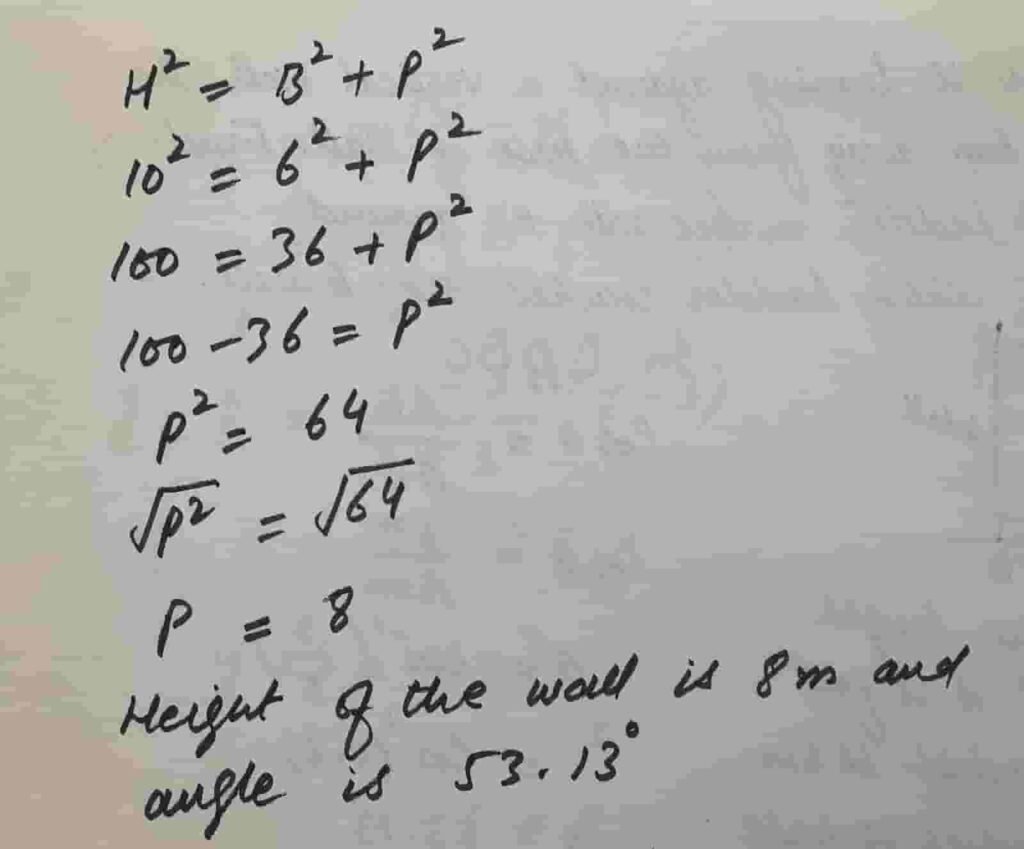 H² = B² + P²
10² = 6² + P²
100 = 36 + P²
100 - 36 = P²
P² = 64
√P² = √64
P = 8
Height of the wall is 8m and
angle is 53.13°